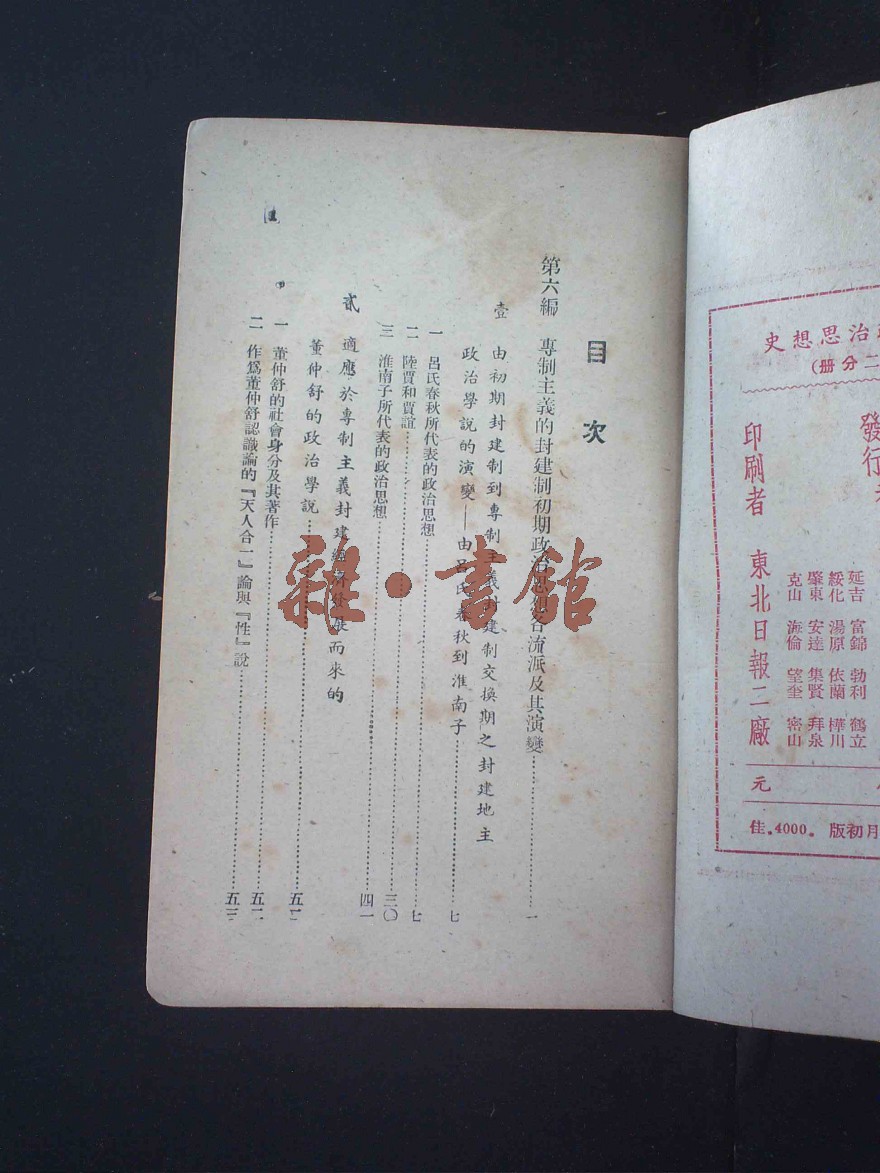 史想思治
(册分二
發行
印刷者 東北日報二廠
延吉 富錦 勃利 鶴立
綏化 湯原 依蘭 樺川
肇東 安達 集賢 拜泉
克山 海倫 望奎 密山
元
佳。4000。版初月
目次
第六編 專制主義的封建制初期政治思想各流派及其演變 一
壹 由初期封建制到專制主義封建制交換期之封建地主
政治學說的演變——由呂氏春秋到淮南子 七
一 呂氏春秋所代表的政治思想 七
二 陸賈和賈誼 三〇
三 淮南子所代表的政治思想 四一
貳 適應於專制主義封建經濟發展而來的
董仲舒的政治學說
一 董仲舒的社會身分及其著作
二 作爲董仲舒認識論的『天人合一』論與『性』說 五三
雜·書館